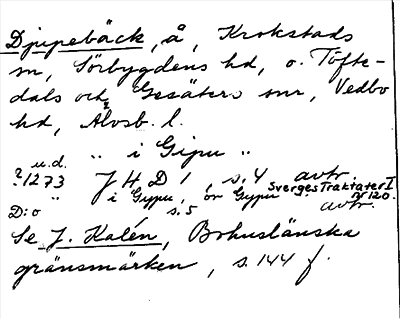 Djupebäck, å, Krokstads
sn, Sörbygdens hd, o. Töfte-
dals och Gesäters snr, Vedbo
hd, Älvsb. l.
" i Gipu "
u.d.
?1273 J H D 1, s. 4 avtr.
Sverges Traktater I
nr 120.
" i Gypu, ör Gypu s. avtr.
D:o s. 5
Se J. Kalén, Bohuslänska
gränsmärken, s. 144 f.